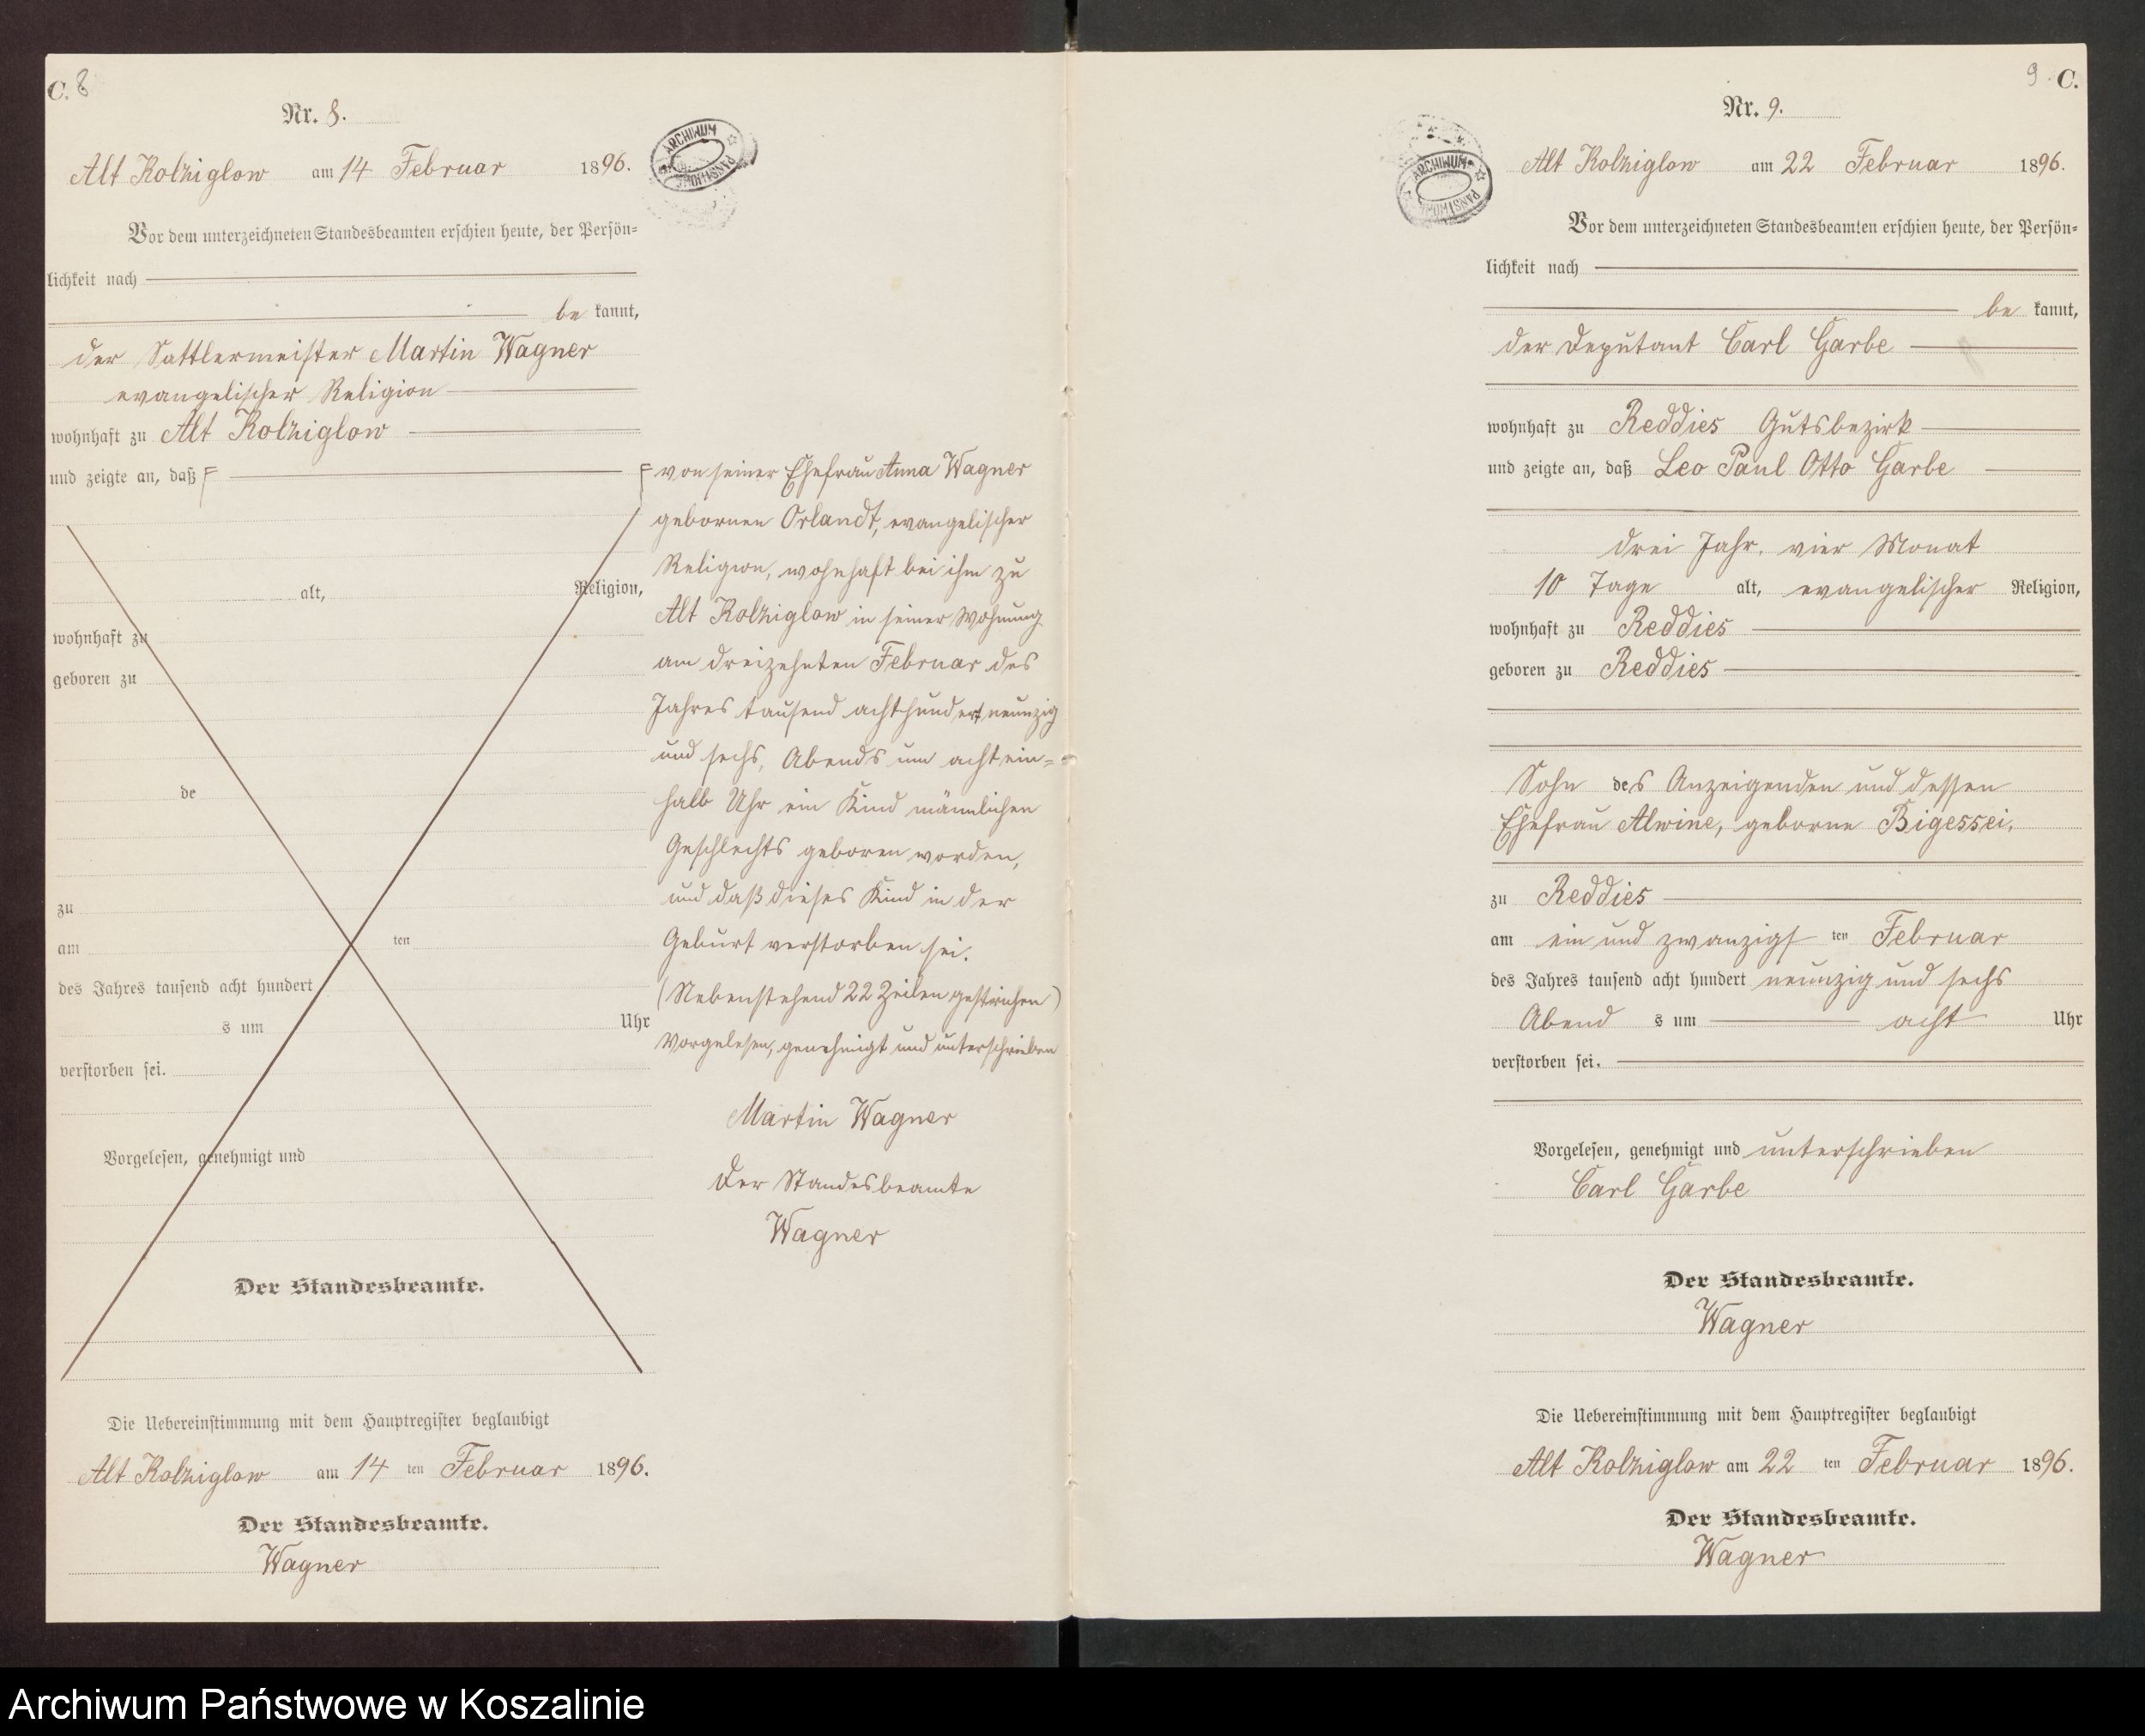 C. 8
Nr. 8.
Alt Kolziglow am 14 Februar 1896.
Vor dem unterzeichneten Standesbeamten erschien heute, der Persön=
lichkeit nach
be kannt,
der Sattlermeister Martin Wagner
evangelischer Religion
wohnhaft zu Alt Kolziglow
und zeigte an, daß F
alt, Religion,
wohnhaft zu
geboren zu
de
zu
am ten
des Jahres tausend acht hundert
s um Uhr
verstorben sei.
Vorgelesen, genehmigt und
Der Standesbeamte.
Die Uebereinstimmung mit dem Hauptregister beglaubigt
Alt Kolziglow am 14 ten Februar 1896.
Der Standesbeamte.
Wagner
ARCHIWUM PAŃSTWOWE
F von seiner Ehefrau Anna Wagner
gebornen Orlandt, evangelischer
Religion, wohnhaft bei ihm zu
Alt Kolziglow in seiner Wohnung
am dreizehnten Februar des
Jahres tausend achthundert neunzig
und sechs, Abends um acht ein=
halb Uhr ein Kind männlichen
Geschlechts geboren worden,
und daß dieses Kind in der
Geburt verstorben sei.
(Nebenstehend 22 Zeilen gestrichen)
Vorgelesen, genehmigt und unterschrieben
Martin Wagner
Der Standesbeamte
Wagner
9 C.
Nr. 9.
ARCHIWUM PAŃSTWOWE
Alt Kolziglow am 22 Februar 1896.
Vor dem unterzeichneten Standesbeamten erschien heute, der Persön=
lichkeit nach
be kannt,
der Deputant Carl Garbe
wohnhaft zu Reddies Gutsbezirk
und zeigte an, daß Leo Paul Otto Garbe
drei Jahr, vier Monat
10 Tage alt, evangelischer Religion,
wohnhaft zu Reddies
geboren zu Reddies
Sohn des Anzeigenden und dessen
Ehefrau Alwine, geborne Bigessei,
zu Reddies
am ein und zwanzigs ten Februar
des Jahres tausend acht hundert neunzig und sechs
Abend s um acht Uhr
verstorben sei.
Vorgelesen, genehmigt und unterschrieben
Carl Garbe
Der Standesbeamte.
Wagner
Die Uebereinstimmung mit dem Hauptregister beglaubigt
Alt Kolziglow am 22 ten Februar 1896.
Der Standesbeamte.
Wagner
Archiwum Państwowe w Koszalinie